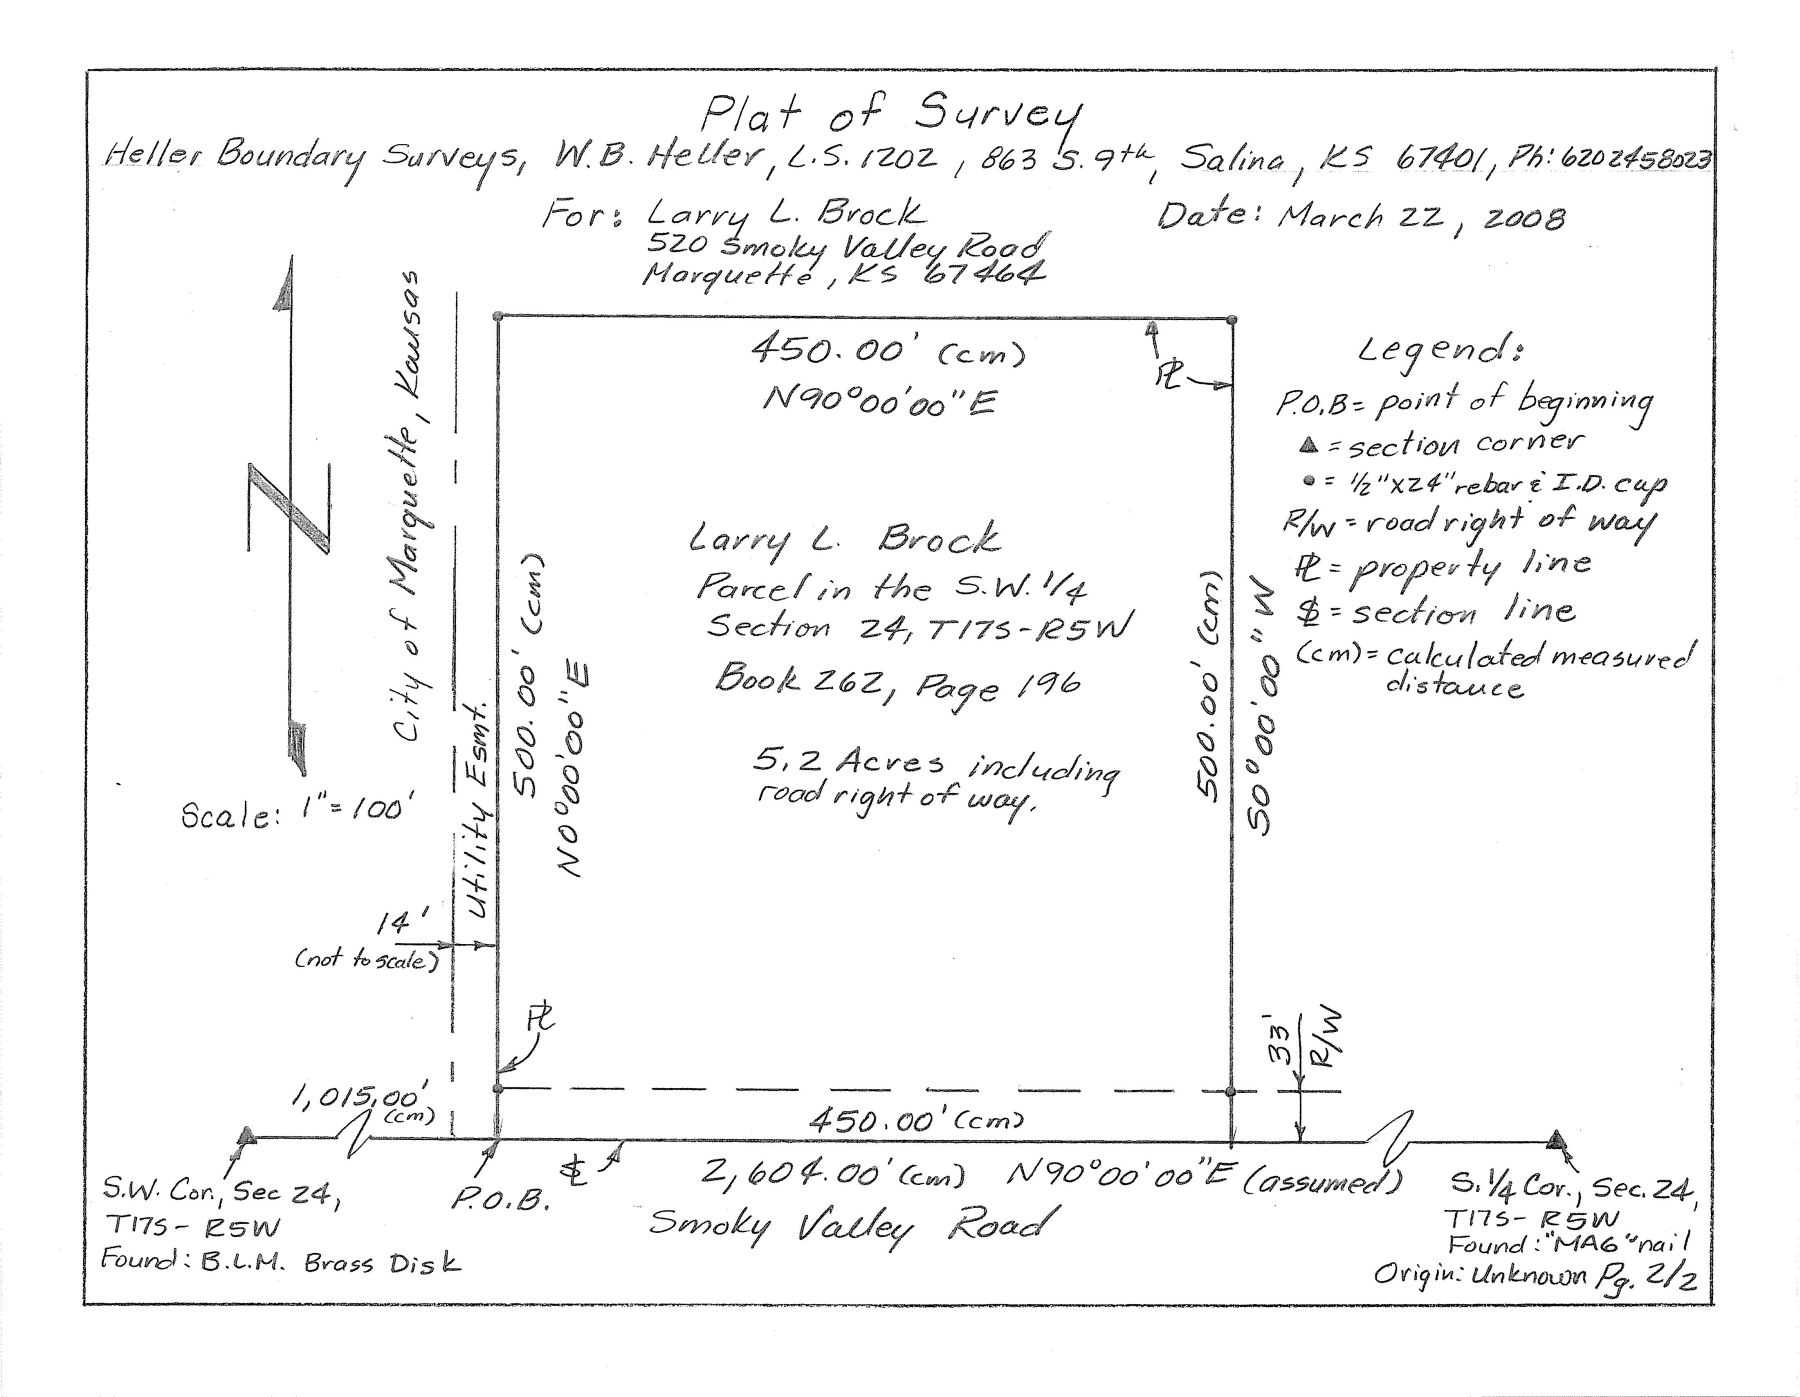 Plat of Survey
Heller Boundary Surveys, W.B. Heller, L.S. 1202, 863 S. 9th, Salina, KS 67401, Ph: 6202458023
For: Larry L. Brock
520 Smoky Valley Road
Marquette, KS 67464
Date: March 22, 2008
N
Scale: 1"=100'
City of Marquette, Kansas
Utility Esmt.
14'
(not to scale)
450.00' (cm)
N90°00'00"E
PL
500.00' (cm)
N0°00'00"E
Larry L. Brock
Parcel in the S.W. 1/4
Section 24, T17S-R5W
Book 262, Page 196
5.2 Acres including
road right of way.
500.00' (cm)
S0°00'00"W
Legend:
P.O.B = point of beginning
▲ = section corner
• = 1/2"x24" rebar & I.D. cap
R/W = road right of way
PL = property line
SL = section line
(cm) = calculated measured
distance
PL
33'
R/W
1,015.00'
(cm)
450.00' (cm)
S.W. Cor., Sec 24,
T17S- R5W
Found: B.L.M. Brass Disk
P.O.B.
SL
2,604.00' (cm) N90°00'00"E (assumed)
Smoky Valley Road
S. 1/4 Cor., Sec. 24,
T17S- R5W
Found: "MAG" nail
Origin: Unknown Pg. 2/2